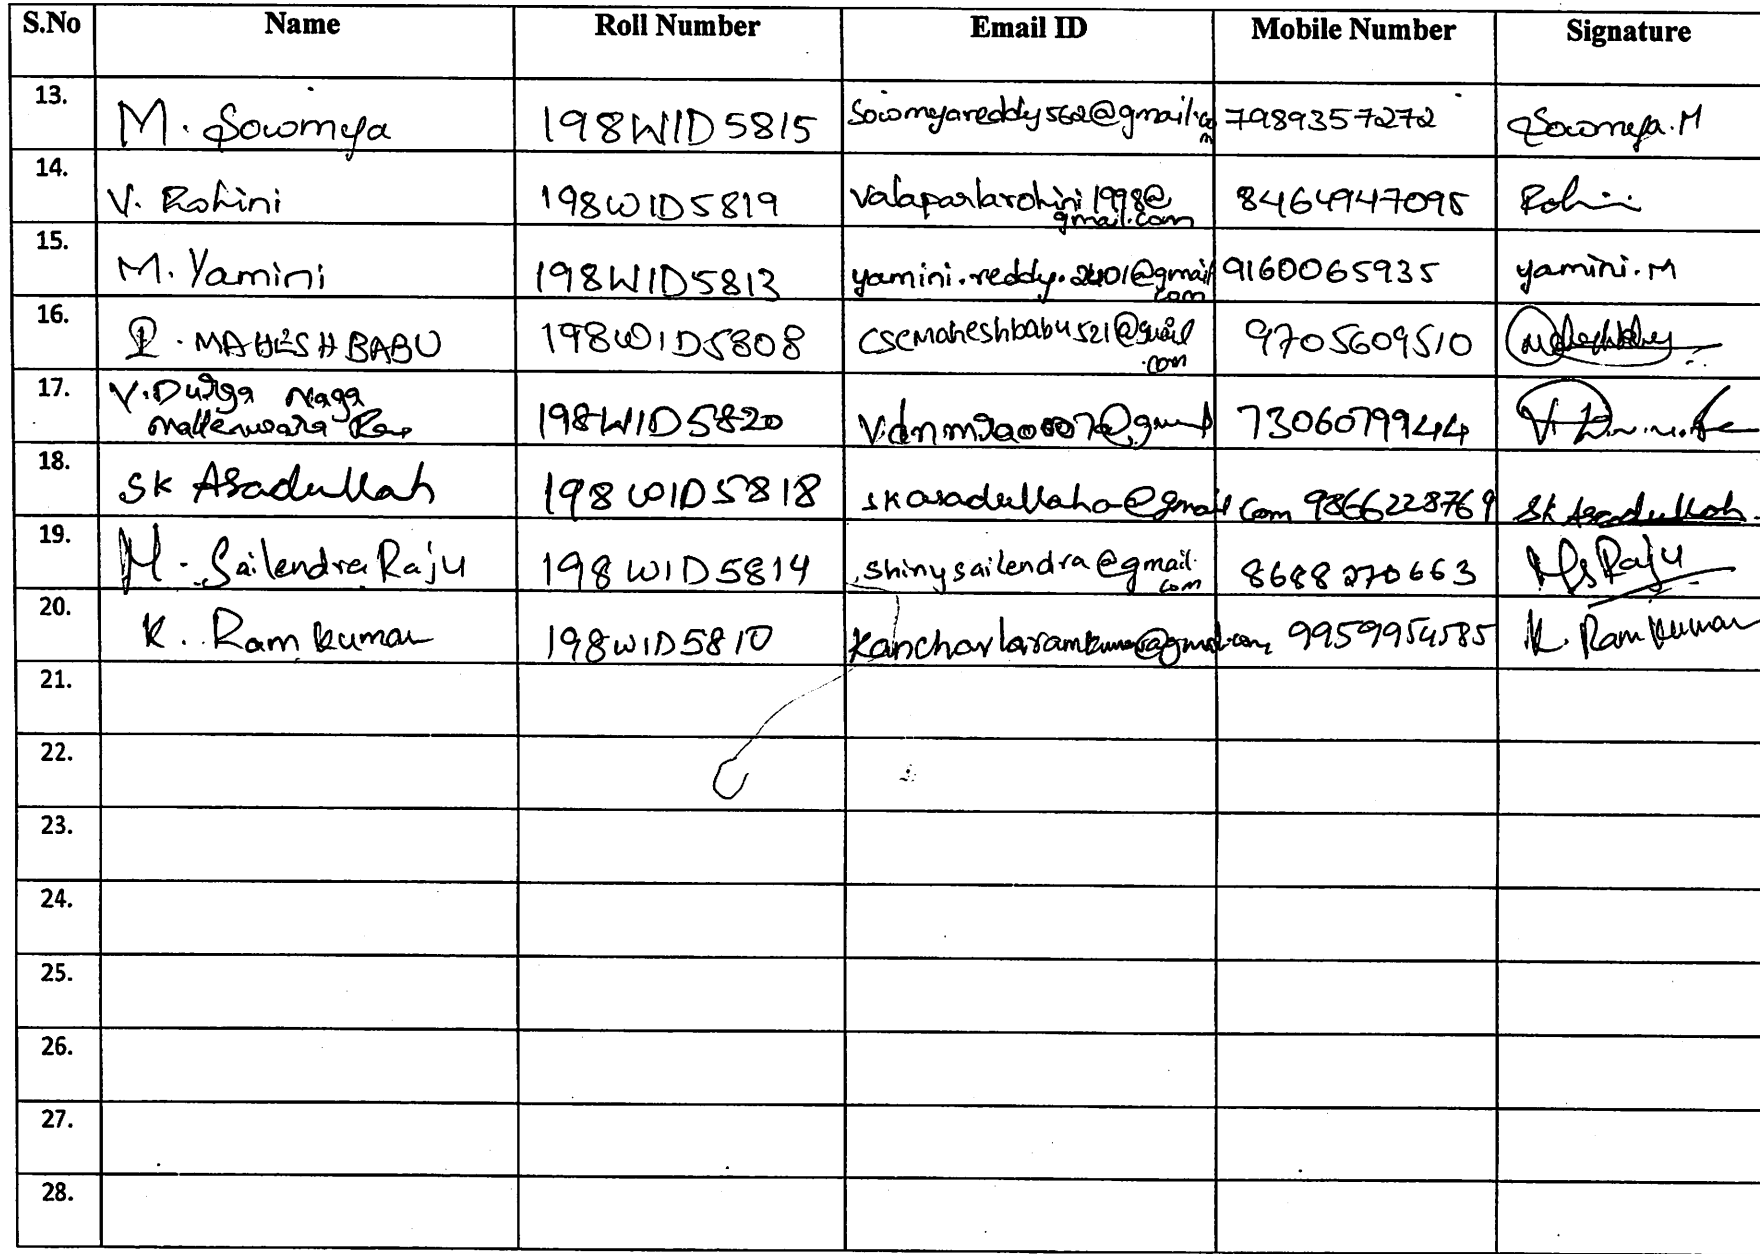 S.No Name Roll Number Email ID Mobile Number Signature
13. M. Sowmya 198W1D5815 Sowmyareddy562@gmail.com 7989357272 Sowmya.M
14. V. Rohini 198W1D5819 valaparlarohini1998@
gmail.com 8464947095 Rohini
15. M. Yamini 198W1D5813 yamini.reddy.2401@gmail
com 9160065935 yamini.M
16. MAHESH BABU 198W1D5808 csemaheshbabu521@gmail
.com 9705609510
17. V. Durga Naga
Malleswara Rao 198W1D5820 7306079944
18. SK Asadullah 198W1D5818 skasadullaha@gmail.com 9866228769 SK Asadullah
19. M. Sailendra Raju 198W1D5814 shinysailendra@gmail.
com 8688270663 MS Raju
20. K. Ram kumar 198W1D5810 kancharlaramkumar@gmail.com 9959954585 K. Ram kumar
21.
22.
23.
24.
25.
26.
27.
28.